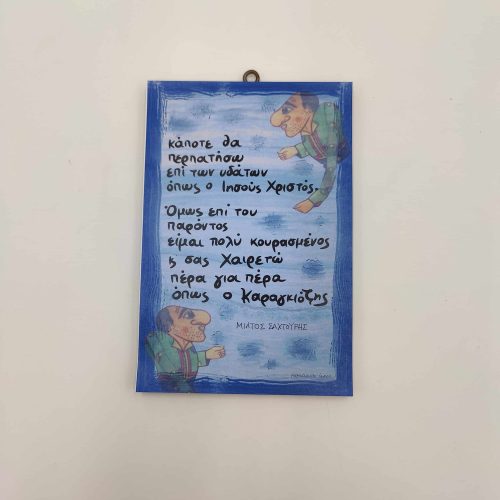 κάποτε θα
περπατήσω
επί των υδάτων
όπως ο Ιησούς Χριστός.
Όμως επί του
παρόντος
είμαι πολύ κουρασμένος
ϗ σας χαιρετώ
πέρα για πέρα
όπως ο Καραγκιόζης
ΜΙΛΤΟΣ ΣΑΧΤΟΥΡΗΣ